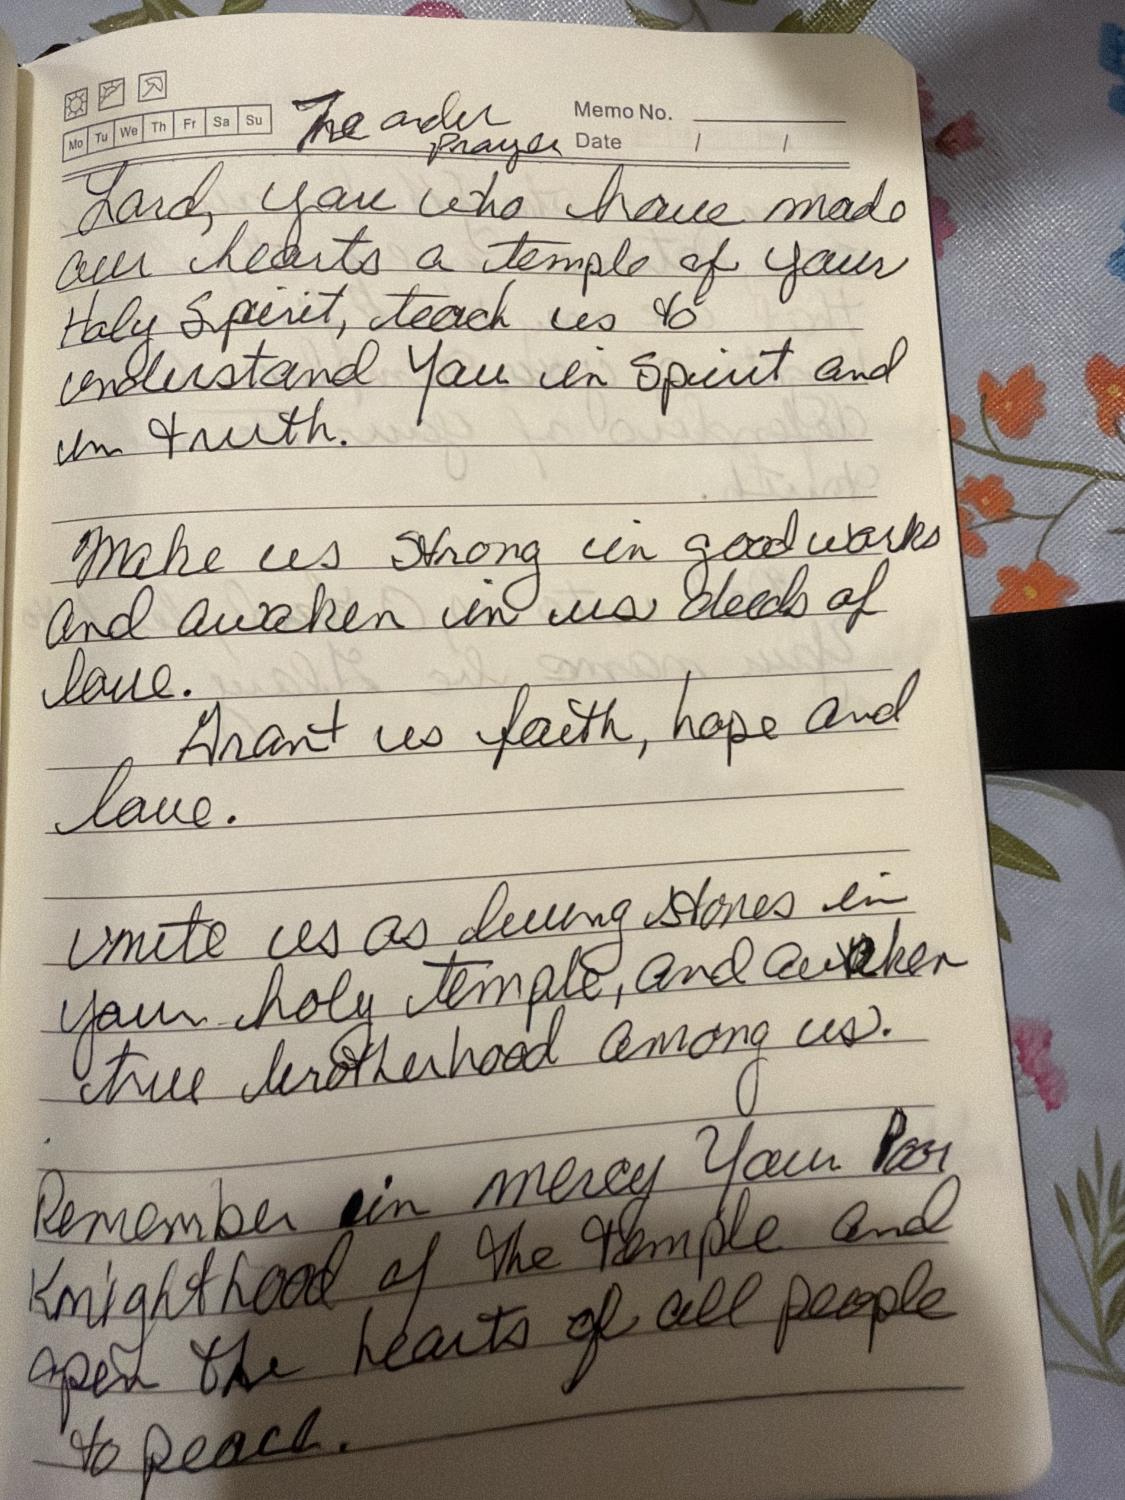 Mo Tu We Th Fr Sa Su
The order
Prayer
Memo No.
Date / /
Lord, you who have made
our hearts a temple of your
Holy Spirit, teach us to
understand You in Spirit and
in truth.
Make us strong in good works
and awaken in us deeds of
love.
Grant us faith, hope and
love.
Unite us as living stones in
your holy temple, and awaken
true brotherhood among us.
Remember in mercy Your Poor
Knighthood of the Temple and
open the hearts of all people
to peace.